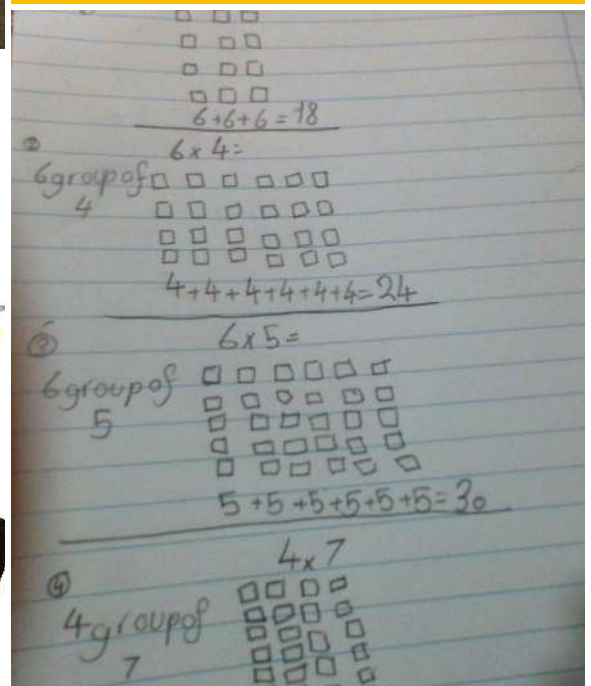 6+6+6=18
② 6x4=
6groupof
4
4+4+4+4+4+4=24
③ 6x5=
6groupof
5
5+5+5+5+5+5=30
4x7
④
4groupof
7